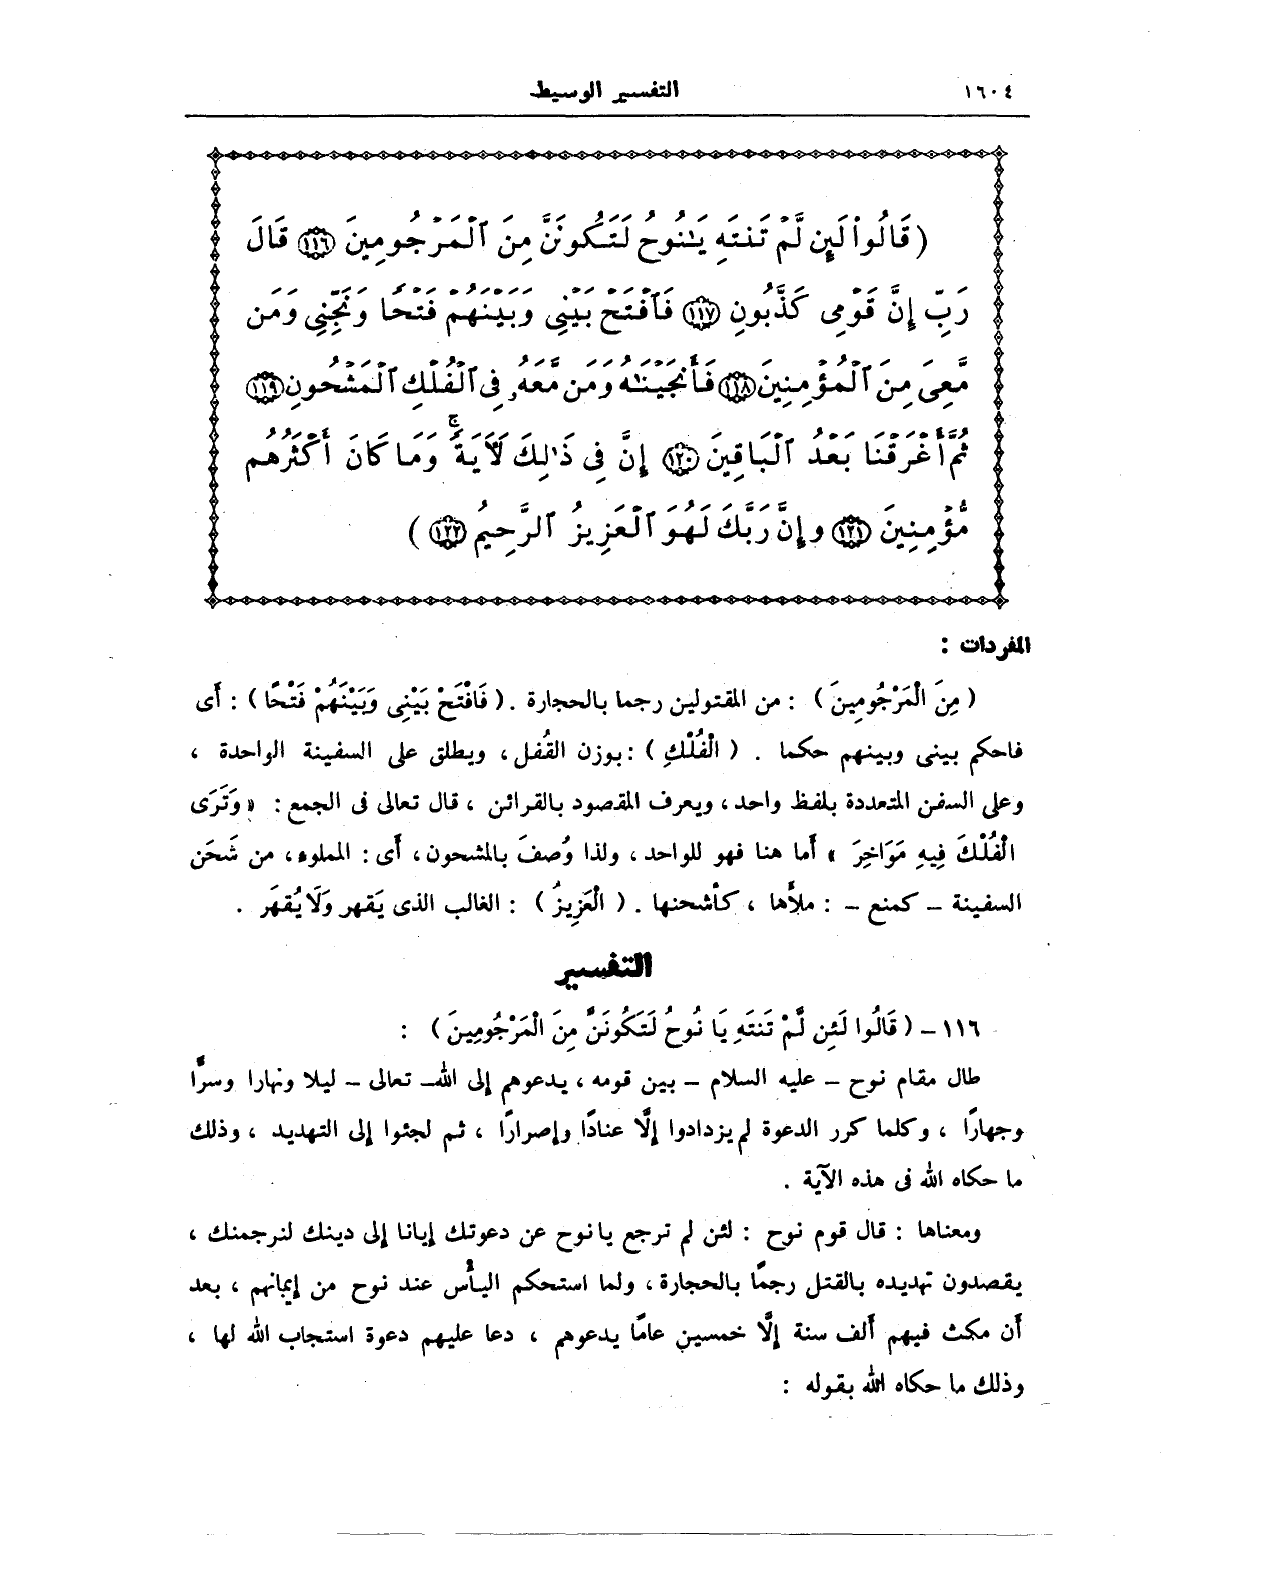 ١٦٠٤
التفسير الوسيط
( قَالُوا۟ لَئِن لَّمْ تَنتَهِ يَٰنُوحُ لَتَكُونَنَّ مِنَ ٱلْمَرْجُومِينَ ١١٦ قَالَ
رَبِّ إِنَّ قَوْمِى كَذَّبُونِ ١١٧ فَٱفْتَحْ بَيْنِى وَبَيْنَهُمْ فَتْحًا وَنَجِّنِى وَمَن
مَّعِىَ مِنَ ٱلْمُؤْمِنِينَ ١١٨ فَأَنجَيْنَٰهُ وَمَن مَّعَهُۥ فِى ٱلْفُلْكِ ٱلْمَشْحُونِ ١١٩
ثُمَّ أَغْرَقْنَا بَعْدُ ٱلْبَاقِينَ ١٢٠ إِنَّ فِى ذَٰلِكَ لَءَايَةً ۖ وَمَا كَانَ أَكْثَرُهُم
مُّؤْمِنِينَ ١٢١ وَإِنَّ رَبَّكَ لَهُوَ ٱلْعَزِيزُ ٱلرَّحِيمُ ١٢٢ )
المفردات :
( مِنَ الْمَرْجُومِينَ ) : من المقتولين رجما بالحجارة . ( فَافْتَحْ بَيْنِى وَبَيْنَهُمْ فَتْحًا ) : أَى
فاحكم بينى وبينهم حكما . ( الْفُلْكِ ) : بوزن القُفل ، ويطلق على السفينة الواحدة ،
وعلى السفن المتعددة بلفظ واحد ، ويعرف المقصود بالقرائن ، قال تعالى فى الجمع : « وَتَرَى
الْفُلْكَ فِيهِ مَوَاخِرَ » أَما هنا فهو للواحد ، ولذا وُصفَ بالمشحون ، أَى : المملوء ، من شَحَن
السفينة – كمنع – : ملأَها ، كأَشحنها . ( الْعَزِيزُ ) : الغالب الذى يَقهر وَلَا يُقهَر .
التفسير
١١٦ – ( قَالُوا لَئِن لَّمْ تَنتَهِ يَا نُوحُ لَتَكُونَنَّ مِنَ الْمَرْجُومِينَ ) :
طال مقام نوح – عليه السلام – بين قومه ، يدعوهم إلى الله – تعالى – ليلا ونهارا وسرًّا
وجهارًا ، وكلما كرر الدعوة لم يزدادوا إلَّا عنادًا وإصرارًا ، ثم لجئوا إلى التهديد ، وذلك
ما حكاه الله فى هذه الآية .
ومعناها : قال قوم نوح : لئن لم ترجع يا نوح عن دعوتك إيانا إلى دينك لنرجمنك ،
يقصدون تهديده بالقتل رجمًا بالحجارة ، ولما استحكم اليأْس عند نوح من إيمانهم ، بعد
أَن مكث فيهم أَلف سنة إلَّا خمسين عامًا يدعوهم ، دعا عليهم دعوة استجاب الله لها ،
وذلك ما حكاه الله بقوله :